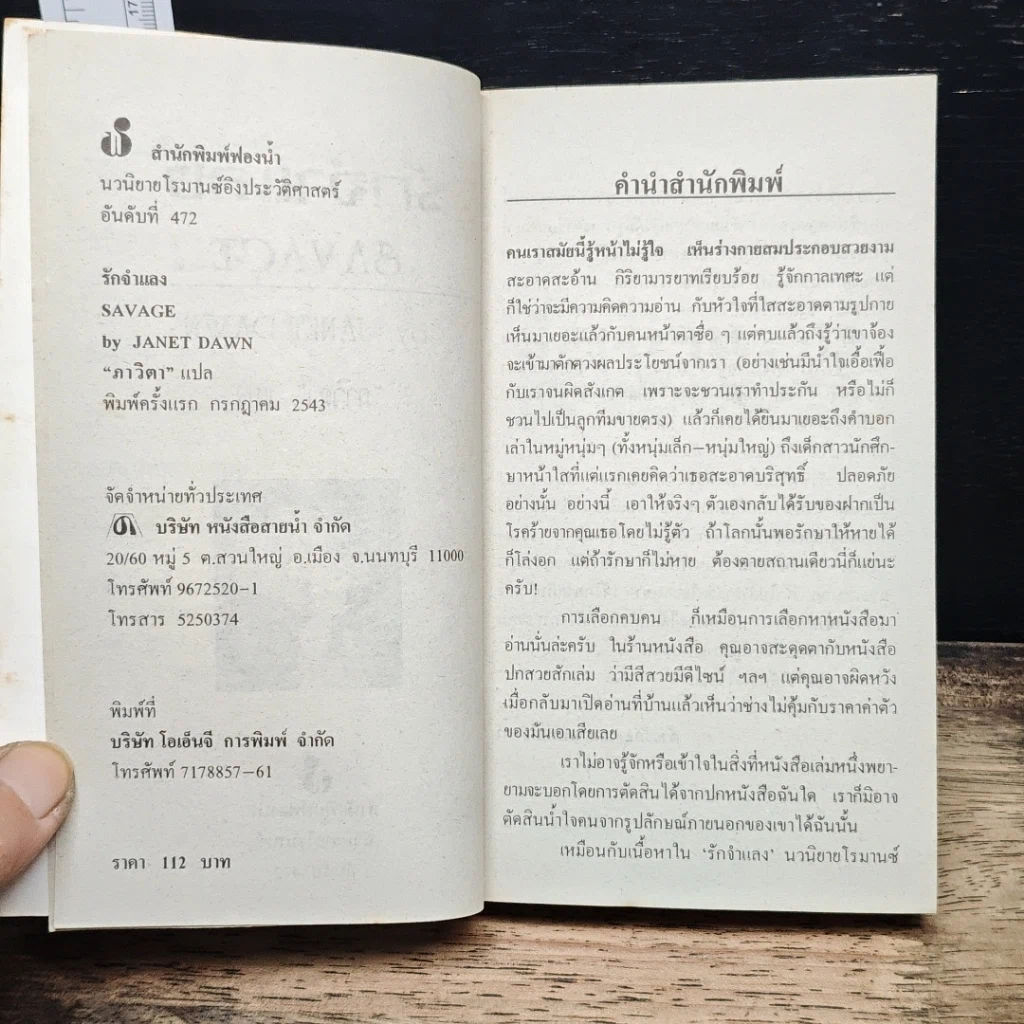 สำนักพิมพ์ฟองน้ำ
นวนิยายโรมานซ์อิงประวัติศาสตร์
อันดับที่ 472
รักจำแลง
SAVAGE
by JANET DAWN
“ภาวิตา” แปล
พิมพ์ครั้งแรก กรกฎาคม 2543
จัดจำหน่ายทั่วประเทศ
บริษัท หนังสือสายน้ำ จำกัด
20/60 หมู่ 5 ต.สวนใหญ่ อ.เมือง จ.นนทบุรี 11000
โทรศัพท์ 9672520-1
โทรสาร 5250374
พิมพ์ที่
บริษัท โอเอ็นจี การพิมพ์ จำกัด
โทรศัพท์ 7178857-61
ราคา 112 บาท
คำนำสำนักพิมพ์
คนเราสมัยนี้รู้หน้าไม่รู้ใจ เห็นร่างกายสมประกอบสวยงาม
สะอาดสะอ้าน กิริยามารยาทเรียบร้อย รู้จักกาลเทศะ แต่
ก็ใช่ว่าจะมีความคิดความอ่าน กับหัวใจที่ใสสะอาดตามรูปกาย
เห็นมาเยอะแล้วกับคนหน้าตาซื่อ ๆ แต่คบแล้วถึงรู้ว่าเขาจ้อง
จะเข้ามาตักตวงผลประโยชน์จากเรา (อย่างเช่นมีน้ำใจเอื้อเฟื้อ
กับเราจนผิดสังเกต เพราะจะชวนเราทำประกัน หรือไม่ก็
ชวนไปเป็นลูกทีมขายตรง) แล้วก็เคยได้ยินมาเยอะถึงคำบอก
เล่าในหมู่หนุ่มๆ (ทั้งหนุ่มเล็ก-หนุ่มใหญ่) ถึงเด็กสาวนักศึก-
ษาหน้าใสที่แต่แรกเคยคิดว่าเธอสะอาดบริสุทธิ์ ปลอดภัย
อย่างนั้น อย่างนี้ เอาให้จริงๆ ตัวเองกลับได้รับของฝากเป็น
โรคร้ายจากคุณเธอโดยไม่รู้ตัว ถ้าโลกนั้นพอรักษาให้หายได้
ก็โล่งอก แต่ถ้ารักษาก็ไม่หาย ต้องตายสถานเดียวนี่ก็แย่นะ
ครับ!
การเลือกคบคน ก็เหมือนการเลือกหาหนังสือมา
อ่านนั่นล่ะครับ ในร้านหนังสือ คุณอาจสะดุดตากับหนังสือ
ปกสวยสักเล่ม ว่ามีสีสวยมีดีไซน์ ฯลฯ แต่คุณอาจผิดหวัง
เมื่อกลับมาเปิดอ่านที่บ้านแล้วเห็นว่าช่างไม่คุ้มกับราคาค่าตัว
ของมันเอาเสียเลย
เราไม่อาจรู้จักหรือเข้าใจในสิ่งที่หนังสือเล่มหนึ่งพยา-
ยามจะบอกโดยการตัดสินได้จากปกหนังสือฉันใด เราก็มิอาจ
ตัดสินน้ำใจคนจากรูปลักษณ์ภายนอกของเขาได้ฉันนั้น
เหมือนกับเนื้อหาใน ‘รักจำแลง’ นวนิยายโรมานซ์